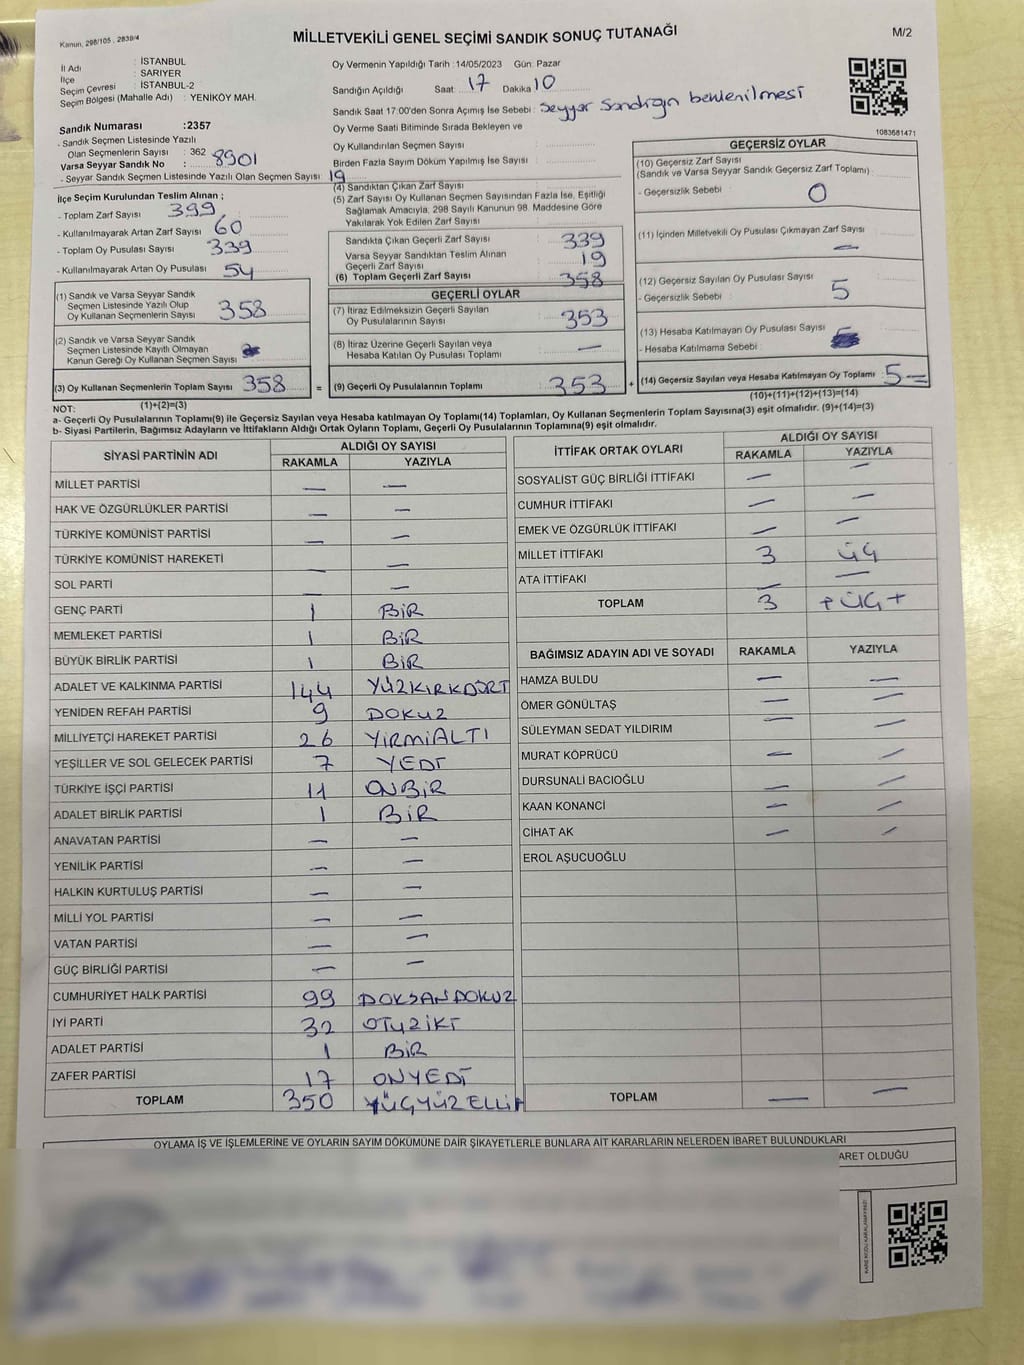 Kanun, 298/105 , 2839/4
MİLLETVEKİLİ GENEL SEÇİMİ SANDIK SONUÇ TUTANAĞI
M/2
İl Adı : İSTANBUL
İlçe : SARIYER
Seçim Çevresi : İSTANBUL-2
Seçim Bölgesi (Mahalle Adı) : YENİKÖY MAH.
Oy Vermenin Yapıldığı Tarih :14/05/2023 Gün: Pazar
Sandığın Açıldığı Saat 17 Dakika 10
Sandık Saat 17:00'den Sonra Açımış İse Sebebi : Seyyar Sandığın beklenilmesi
Oy Verme Saati Bitiminde Sırada Bekleyen ve
Oy Kullandırılan Seçmen Sayısı :
Birden Fazla Sayım Döküm Yapılmış İse Sayısı :
1083681471
Sandık Numarası :2357
- Sandık Seçmen Listesinde Yazılı
Olan Seçmenlerin Sayısı : 362
Varsa Seyyar Sandık No : 8901
- Seyyar Sandık Seçmen Listesinde Yazılı Olan Seçmen Sayısı 19
İlçe Seçim Kurulundan Teslim Alınan ;
- Toplam Zarf Sayısı 399
- Kullanılmayarak Artan Zarf Sayısı : 60
- Toplam Oy Pusulası Sayısı 339
- Kullanılmayarak Artan Oy Pusulası : 54
(1) Sandık ve Varsa Seyyar Sandık
Seçmen Listesinde Yazılı Olup
Oy Kullanan Seçmenlerin Sayısı : 358
(2) Sandık ve Varsa Seyyar Sandık
Seçmen Listesinde Kayıtlı Olmayan
Kanun Gereği Oy Kullanan Seçmen Sayısı :
(3) Oy Kullanan Seçmenlerin Toplam Sayısı : 358 =
(1)+(2)=(3)
(4) Sandıktan Çıkan Zarf Sayısı :
(5) Zarf Sayısı Oy Kullanan Seçmen Sayısından Fazla İse, Eşitliği
Sağlamak Amacıyla, 298 Sayılı Kanunun 98. Maddesine Göre
Yakılarak Yok Edilen Zarf Sayısı :
Sandıkta Çıkan Geçerli Zarf Sayısı : 339
Varsa Seyyar Sandıktan Teslim Alınan
Geçerli Zarf Sayısı : 19
(6) Toplam Geçerli Zarf Sayısı : 358
GEÇERLİ OYLAR
(7) İtiraz Edilmeksizin Geçerli Sayılan
Oy Pusulalarının Sayısı : 353
(8) İtiraz Üzerine Geçerli Sayılan veya
Hesaba Katılan Oy Pusulası Toplamı : —
(9) Geçerli Oy Pusulalarının Toplamı : 353 +
GEÇERSİZ OYLAR
(10) Geçersiz Zarf Sayısı
(Sandık ve Varsa Seyyar Sandık Geçersiz Zarf Toplamı)
- Geçersizlik Sebebi : 0
(11) İçinden Milletvekili Oy Pusulası Çıkmayan Zarf Sayısı : —
(12) Geçersiz Sayılan Oy Pusulası Sayısı :
- Geçersizlik Sebebi : 5
(13) Hesaba Katılmayan Oy Pusulası Sayısı :
- Hesaba Katılmama Sebebi :
(14) Geçersiz Sayılan veya Hesaba Katılmayan Oy Toplamı : 5 —
(10)+(11)+(12)+(13)=(14)
NOT:
a- Geçerli Oy Pusulalarının Toplamı(9) ile Geçersiz Sayılan veya Hesaba katılmayan Oy Toplamı(14) Toplamları, Oy Kullanan Seçmenlerin Toplam Sayısına(3) eşit olmalıdır. (9)+(14)=(3)
b- Siyasi Partilerin, Bağımsız Adayların ve İttifakların Aldığı Ortak Oyların Toplamı, Geçerli Oy Pusulalarının Toplamına(9) eşit olmalıdır.
SİYASİ PARTİNİN ADI ALDIĞI OY SAYISI
RAKAMLA YAZIYLA
MİLLET PARTİSİ — —
HAK VE ÖZGÜRLÜKLER PARTİSİ — —
TÜRKİYE KOMÜNİST PARTİSİ — —
TÜRKİYE KOMÜNİST HAREKETİ — —
SOL PARTİ — —
GENÇ PARTİ 1 BİR
MEMLEKET PARTİSİ 1 BİR
BÜYÜK BİRLİK PARTİSİ 1 BİR
ADALET VE KALKINMA PARTİSİ 144 YÜZKIRKDÖRT
YENİDEN REFAH PARTİSİ 9 DOKUZ
MİLLİYETÇİ HAREKET PARTİSİ 26 YİRMİALTI
YEŞİLLER VE SOL GELECEK PARTİSİ 7 YEDİ
TÜRKİYE İŞÇİ PARTİSİ 11 ONBİR
ADALET BİRLİK PARTİSİ 1 BİR
ANAVATAN PARTİSİ — —
YENİLİK PARTİSİ — —
HALKIN KURTULUŞ PARTİSİ — —
MİLLİ YOL PARTİSİ — —
VATAN PARTİSİ — —
GÜÇ BİRLİĞİ PARTİSİ — —
CUMHURİYET HALK PARTİSİ 99 DOKSANDOKUZ
İYİ PARTİ 32 OTUZİKİ
ADALET PARTİSİ 1 BİR
ZAFER PARTİSİ 17 ONYEDİ
TOPLAM 350 ÜÇYÜZELLİ
İTTİFAK ORTAK OYLARI ALDIĞI OY SAYISI
RAKAMLA YAZIYLA
SOSYALİST GÜÇ BİRLİĞİ İTTİFAKI — —
CUMHUR İTTİFAKI — —
EMEK VE ÖZGÜRLÜK İTTİFAKI — —
MİLLET İTTİFAKI 3 ÜÇ
ATA İTTİFAKI — —
TOPLAM 3 + ÜÇ +
BAĞIMSIZ ADAYIN ADI VE SOYADI RAKAMLA YAZIYLA
HAMZA BULDU — —
ÖMER GÖNÜLTAŞ — —
SÜLEYMAN SEDAT YILDIRIM — —
MURAT KÖPRÜCÜ — —
DURSUNALİ BACIOĞLU — —
KAAN KONANCİ — —
CİHAT AK — —
EROL AŞUCUOĞLU
TOPLAM — —
OYLAMA İŞ VE İŞLEMLERİNE VE OYLARIN SAYIM DÖKÜMÜNE DAİR ŞİKAYETLERLE BUNLARA AİT KARARLARIN NELERDEN İBARET BULUNDUKLARI
ARET OLDUĞU